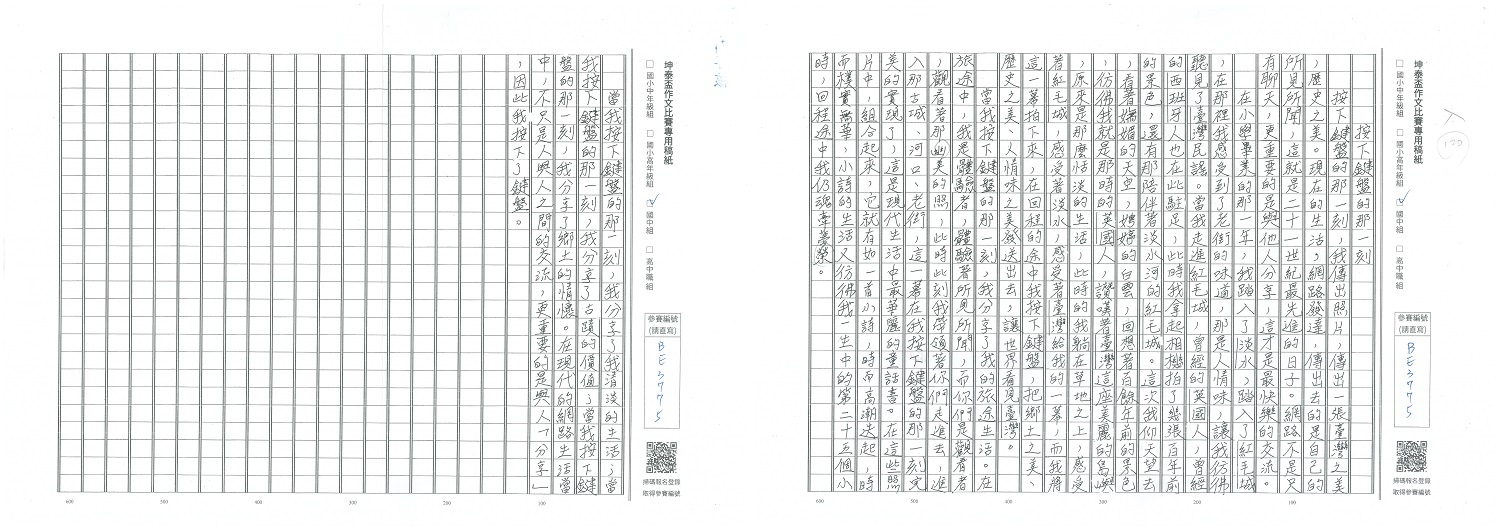 坤泰盃作文比賽專用稿紙
□ 國小中年級組 □ 國小高年級組 ☑ 國中組 □ 高中職組
參賽編號
(請直寫)
BE3775
掃碼報名登錄
取得參賽編號
100
按下鍵盤的那一刻
按下鍵盤的那一刻,我傳出照片,傳出一張臺灣之美
,歷史之美。現在的生活,網路發達,傳出去的是自己的
所見所聞,這就是二十一世紀最先進的日子。網路不是只
有聊天,更重要的是與他人分享,這才是最快樂的交流。
在小學畢業的那一年,我踏入了淡水,踏入了紅毛城
,在那裡我感受到了老街的味道,那是人情味,讓我彷彿
聽見了臺灣民謠。當我走進紅毛城,曾經的英國人,曾經
的西班牙人也在此駐足,此時我拿起相機拍了幾張百年前
的景色,還有那陪伴著淡水河的紅毛城。這次我仰天望去
,看著嫵媚的天空,娉婷的白雲,回想著百餘年前的景色
,彷彿我就是那時的英國人,讚嘆著臺灣這座美麗的島嶼
,原來是那麼恬淡的生活,此時的我躺在草地之上,感受
著紅毛城,感受著淡水,感受著臺灣給我的一幕,而我將
這一幕拍下來,在回程的途中我按下鍵盤,把鄉土之美、
歷史之美、人情味之美發送出去,讓世界看見臺灣。
當我按下鍵盤的那一刻,我分享了我的旅途生活。在
旅途中,我是體驗者,體驗著所見所聞,而你們是觀看者
,觀看著那幽美的照,此時此刻我帶領著你們走進去,進
入那古城、河口、老街,這一幕在我按下鍵盤的那一刻完
美的實現了,這是現代生活中最華麗的童話書。在這些照
片中,組合起來,它就有如一首小詩,時而高潮迭起,時
而樸實無華,小詩的生活又彷彿我一生中的第二十五個小
時,回程途中我仍魂牽夢縈。
100
200
300
400
500
600
坤泰盃作文比賽專用稿紙
□ 國小中年級組 □ 國小高年級組 ☑ 國中組 □ 高中職組
參賽編號
(請直寫)
BE3775
掃碼報名登錄
取得參賽編號
當我按下鍵盤的那一刻,我分享了我清淡的生活;當
我按下鍵盤的那一刻,我分享了古蹟的價值;當我按下鍵
盤的那一刻,我分享了鄉土的情懷。在現代的網路生活當
中,不只是人與人之間的交流,更重要的是與人「分享」
,因此我按下了鍵盤。
100
200
300
400
500
600